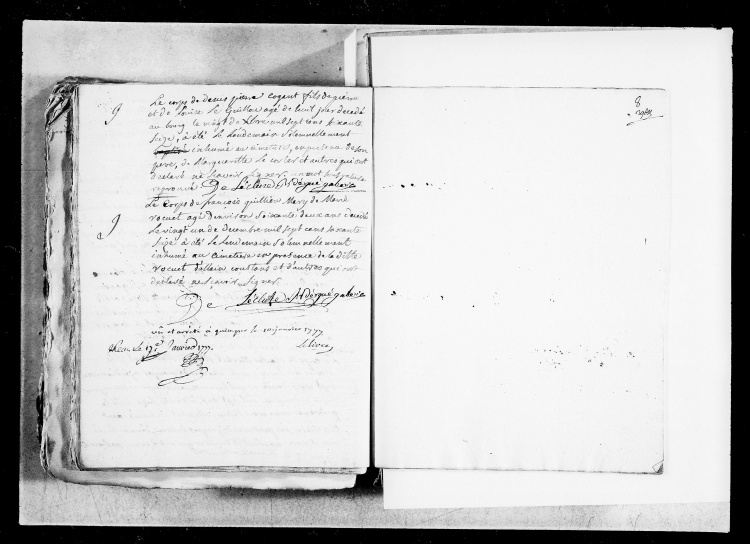 9
Le corps de denis pierre cogent fils de pierre
et de Louise Le Guillou agé de huit jour decedé
au bourg le vingt de Xbre mil sept cens soixante
seize, à été le lendemain solennellement
inhumé au cimetiere, en presence de son
pere, de Margueritte Le et autres qui ont
declaré ne sçavoir signer. un mot
reprouvé De Lécluse Rr dérgué gaberic
9
Le Corps de françois guillien Mary de Marie
rocuet agé d'environ soixante deux ans decedé
le vingt un de Decembre mil sept cens soixante
seize à été le lendemain solennellement
inhumé au cimetiere en presence de la ditte
rocuet d'allain coustans et d'autres qui ont
declaré ne sçavoir signer.
De Lécluse Rr dérgué gaberic
vû et arreté à quimper le 10 janvier 1777
Le 17e Janvier 1777.
8